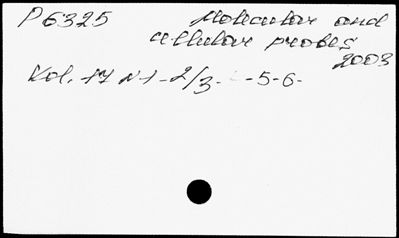 P 6325 Molecular and
cellular probes
2003
Vol. 17 N 1-2/3- -5-6-